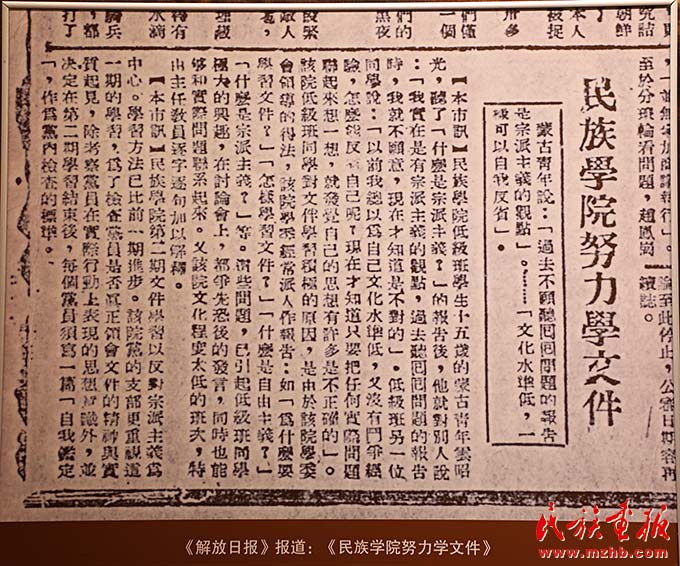 至於分班輪看問題，趙鳳崗
論至此停止，公審日期容再
續誌。
民族學院努力學文件
蒙古青年說：「過去不願聽囘囘問題的報告
是宗派主義的觀點」。……「文化水準低，一
樣可以自我反省」。
【本市訊】民族學院低級班學生十五歲的蒙古青年雲昭
光，聽了「什麼是宗派主義？」的報告後，他就對別人說
：「我實在是有宗派主義的觀點，過去聽囘囘問題的報告
時，我就不願意，現在才知道是不對的」。低級班另一位
同學說：「以前我總以為自己文化水準低，又沒有鬥爭經
驗，怎麼能反省自己呢？現在才知道只要把任何實際問題
聯起來想一想，就發覺自己的思想有許多是不正確的」。
該院低級班同學對文件學習積極的原因，是由於該院學委
會領導的得法，該院學委經常派人作報告：如「為什麼要
學習文件？」「怎樣學習文件？」「什麼是自由主義？」
「什麼是宗派主義？」等。這些問題，已引起低級班同學
極大的興趣，在討論會上，都爭先恐後的發言，同時也能
夠和實際問題聯系起來。又該院文化程度太低的班次，特
由主任教員逐字逐句加以解釋。
【本市訊】民族學院第二期文件學習以反對宗派主義為
中心。學習方法已比前一期進步。該院黨的支部更重視這
一期的學習，為了檢查黨員是否真正領會文件的精神與實
質起見，除考察黨員在實際行動上表現的思想意識外，並
決定在第二期學習結束後，每個黨員須寫一篇「自我鑑定
」，作為黨內檢查的標準。
《解放日报》报道：《民族学院努力学文件》
民族画报
www.mzhb.com